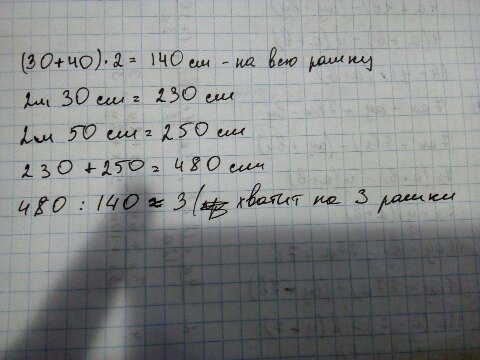 (30+40)·2 = 140 см - на всю рамку
2м 30 см = 230 см
2м 50 см = 250 см
230 + 250 = 480 см
480 : 140 ≈ 3 ( хватит на 3 рамки